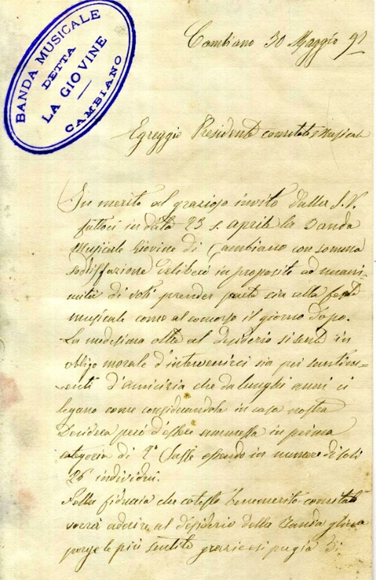 BANDA MUSICALE
DETTA
LA GIOVINE
CAMBIANO
Cambiano 30 Maggio 9
Egreggio Presidente comitato Musicale
In merito al grazioso invito dalla S.V.
fattaci in data 23 s. aprile la Banda
Musicale Giovine di Cambiano con somma
sodisfazione deliberò in proposito ad unani
mità di voti prender parte sia alla festa
musicale come al concorso il giorno dopo.
La medesima oltre al desiderio si sente in
obligo morale d'intervenirci sia pei sentim
enti d'amicizia che da lunghi anni ci
legano come considerandola in casa nostra
Desidera però d'essere ammessa in prima
categoria di 2° essendo in numero di soli
26 individui.
Nella fiducia che cotesto Benemerito comitato
vorrà aderire al desiderio della Banda
porge le più sentite grazie